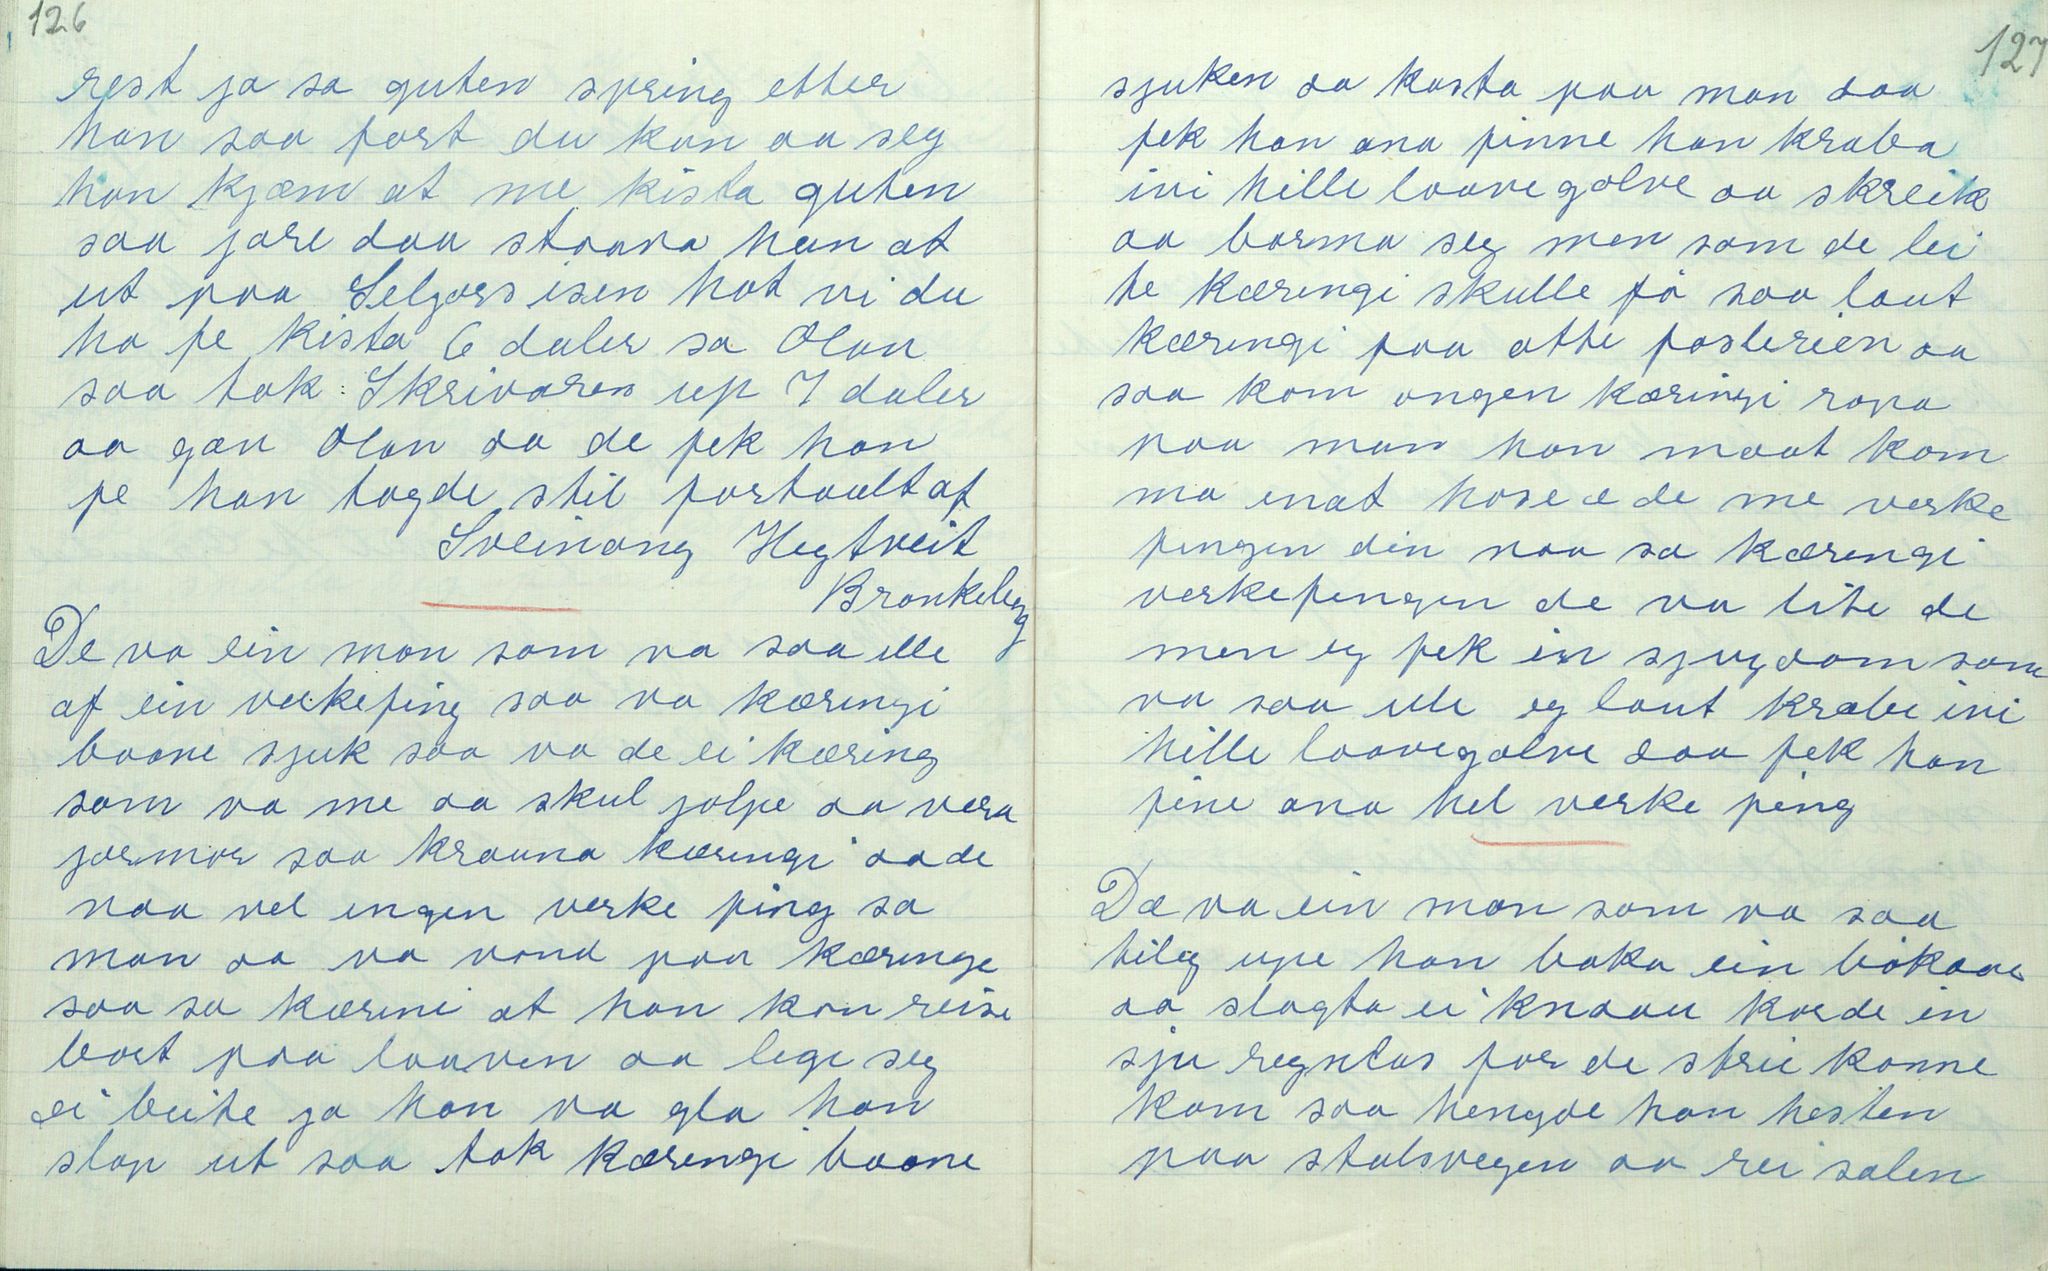 126
rest ja sa guten spring etter
han saa fort du kan aa seg
han kjæm at me kista guten
saa jore daa staava han at
ut paa Seljors isen hot vi du
ha fe kista 6 daler sa Olan
saa tok Skrivaren up 7 daler
aa gav Olan aa de fek han
fe han tagde stil
Sveinang Hegtveit
Bronkeberg
De va ein man som va saa ille
af ein verkefing saa va kæringi
baane sjuk saa va de ei kæring
som va me aa skul jolpe aa vera
jormor saa krauna kæringi aa de
naa vel ingen verke fing sa
man aa va vond paa kæringe
saa sa kærini at han kan reise
bort paa laaven aa lege seg
ei beite ja han va gla han
slap ut saa tok kæringi baane
127
sjuken aa kasta paa man daa
fek han ana pinne han kraba
ivi hille laavegolve aa skreik
aa barma seg men som de lei
te kæringi skulle få saa laut
kæringi paa atte fosterien aa
saa kom ongen kæringi ropa
paa man han maat kom
ma inat hose æ de me verke
fingen din naa sa kæringi
verkefingen de va lite de
men eg fek in sjugdom som
va saa ille eg laut krabe ivi
hille laavegolve daa fek han
pine ana hel verke fing
Dæ va ein man som va saa
tileg upe han baka ein bökaav
aa slagta ei knaau korde in
sju regnlas for de strie konne
kom saa hengde han hesten
paa stalsvegen aa rei salen